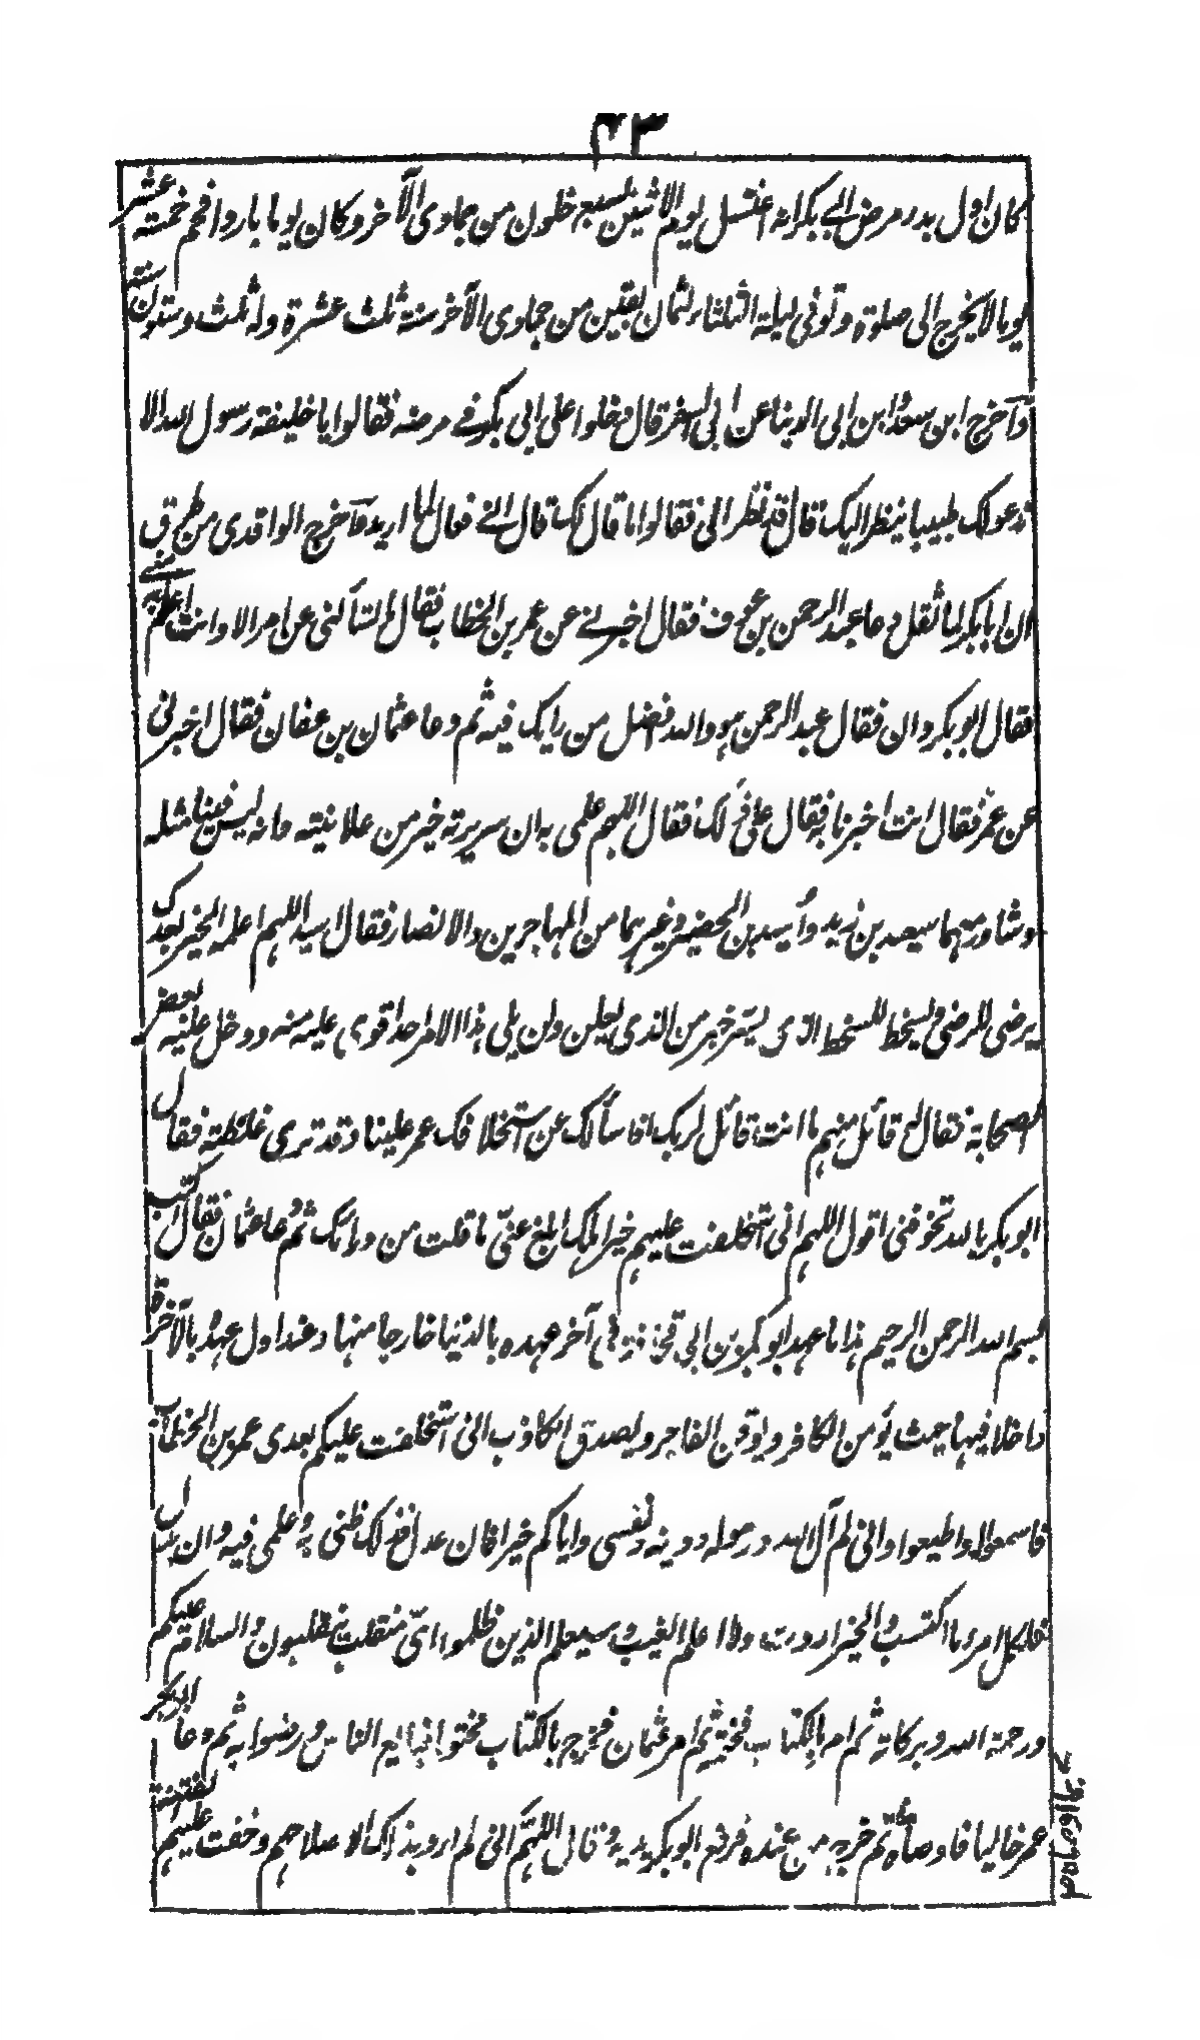 ٤٣
كان اول بدر مرض ابي بكر انه اغتسل يوم الاثنين لسبع خلون من جماوى الآخر وكان يوما باردا فحم خمسة عشر
يوما لا يخرج الى صلوة وتوفى ليلة الثلثاء لثمان بقين من جماوى الآخر سنة ثلث عشرة وله ثلث وستون سنة
وآخرج ابن سعد وابن ابى الدنيا عن ابى السفر قال دخلوا على ابى بكر في مرضه فقالوا يا خليفة رسول الله الا
ندعو لك طبيبا ينظر اليك قال قد نظر الى فقالوا ما قال لك قال انى فعال لما اريد وآخرج الواقدى من طرق
ان ابا بكر لما ثقل دعا عبد الرحمن بن عوف فقال اخبرني عن عمر بن الخطاب فقال ما تسألنى عن امر الا وانت اعلم به منى
فقال ابو بكر وان فقال عبد الرحمن هو والله افضل من رايك فيه ثم دعا عثمان بن عفان فقال اخبرنى
عن عمر فقال انت اخبرنا به فقال على ذلك فقال اللهم علمى به ان سريرته خير من علانيته وانه ليس فينا مثله
وشاور معهما سعيد بن زيد وأسيد بن الحضير وغيرهما من المهاجرين والانصار فقال اسيد اللهم اعلمه الخير بعدك
يرضى للرضى ويسخط للسخط الذى يسر خير من الذى يعلن ولن يلى هذا الامر احد اقوى عليه منه ودخل عليه بعض
الصحابة فقال له قائل منهم ما انت قائل لربك اذا سألك عن استخلافك عمر علينا وقد ترى غلظته فقال
ابو بكر بالله تخوفنى اقول اللهم انى استخلفت عليهم خير اهلك ابلغ عنى ما قلت من ورائك ثم دعا عثمان فقال اكتب
بسم الله الرحمن الرحيم هذا ما عهد ابو بكر بن ابى قحافة فى آخر عهده بالدنيا خارجا منها وعند اول عهده بالآخرة
داخلا فيها حيث يؤمن الكافر ويوقن الفاجر ويصدق الكاذب انى استخلفت عليكم بعدى عمر بن الخطاب
فاسمعوا له واطيعوا وانى لم آل الله ورسوله ودينه ونفسى واياكم خيرا فان عدل فذلك ظنى به وعلمى فيه وان بدل
فلكل امرء ما اكتسب والخير اردت ولا اعلم الغيب وسيعلم الذين ظلموا اىّ منقلب ينقلبون والسلام عليكم
ورحمة الله وبركاته ثم امر بالكتاب فختمه ثم امر عثمان فخرج بالكتاب مختوما فبايع الناس ورضوا به ثم دعا ابو بكر
عمر خاليا فاوصاه ثم خرج من عنده فرفع ابو بكر يديه وقال اللهم انى لم ارد بذلك الا صلاحهم وخفت عليهم الفتنة